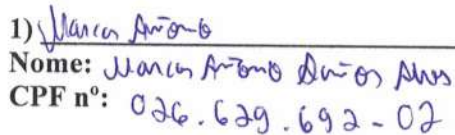 1) Marcos Antonio
Nome: Marcos Antonio Santos Alves
CPF nº: 026.629.692-02